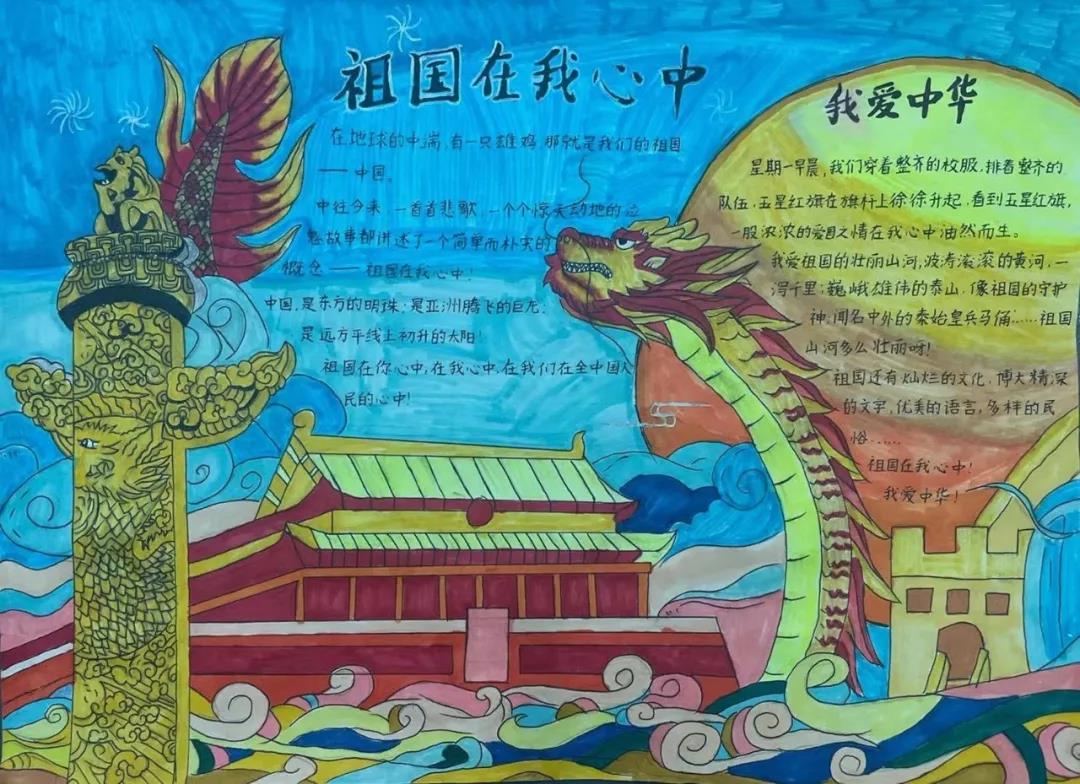 祖国在我心中
在地球的中端,有一只雄鸡,那就是我们的祖国
——中国。
中往今来,一首首悲歌,一个个惊天动地的
故事都讲述了一个简单而朴实的
概念——祖国在我心中!
中国,是东方的明珠;是亚洲腾飞的巨龙;
是远方平线上初升的太阳!
祖国在你心中,在我心中,在我们在全中国人
民的心中!
我爱中华
星期一早晨,我们穿着整齐的校服,排着整齐的
队伍,五星红旗在旗杆上徐徐升起,看到五星红旗,
一股浓浓的爱国之情在我心中油然而生。
我爱祖国的壮丽山河,波涛滚滚的黄河,一
泻千里;巍峨雄伟的泰山,像祖国的守护
神;闻名中外的秦始皇兵马俑……祖国
山河多么壮丽呀!
祖国还有灿烂的文化,博大精深
的文字,优美的语言,多样的民
俗……
祖国在我心中!
我爱中华!